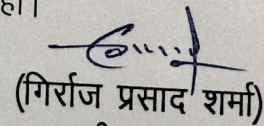 हो।
(गिर्राज प्रसाद शर्मा)